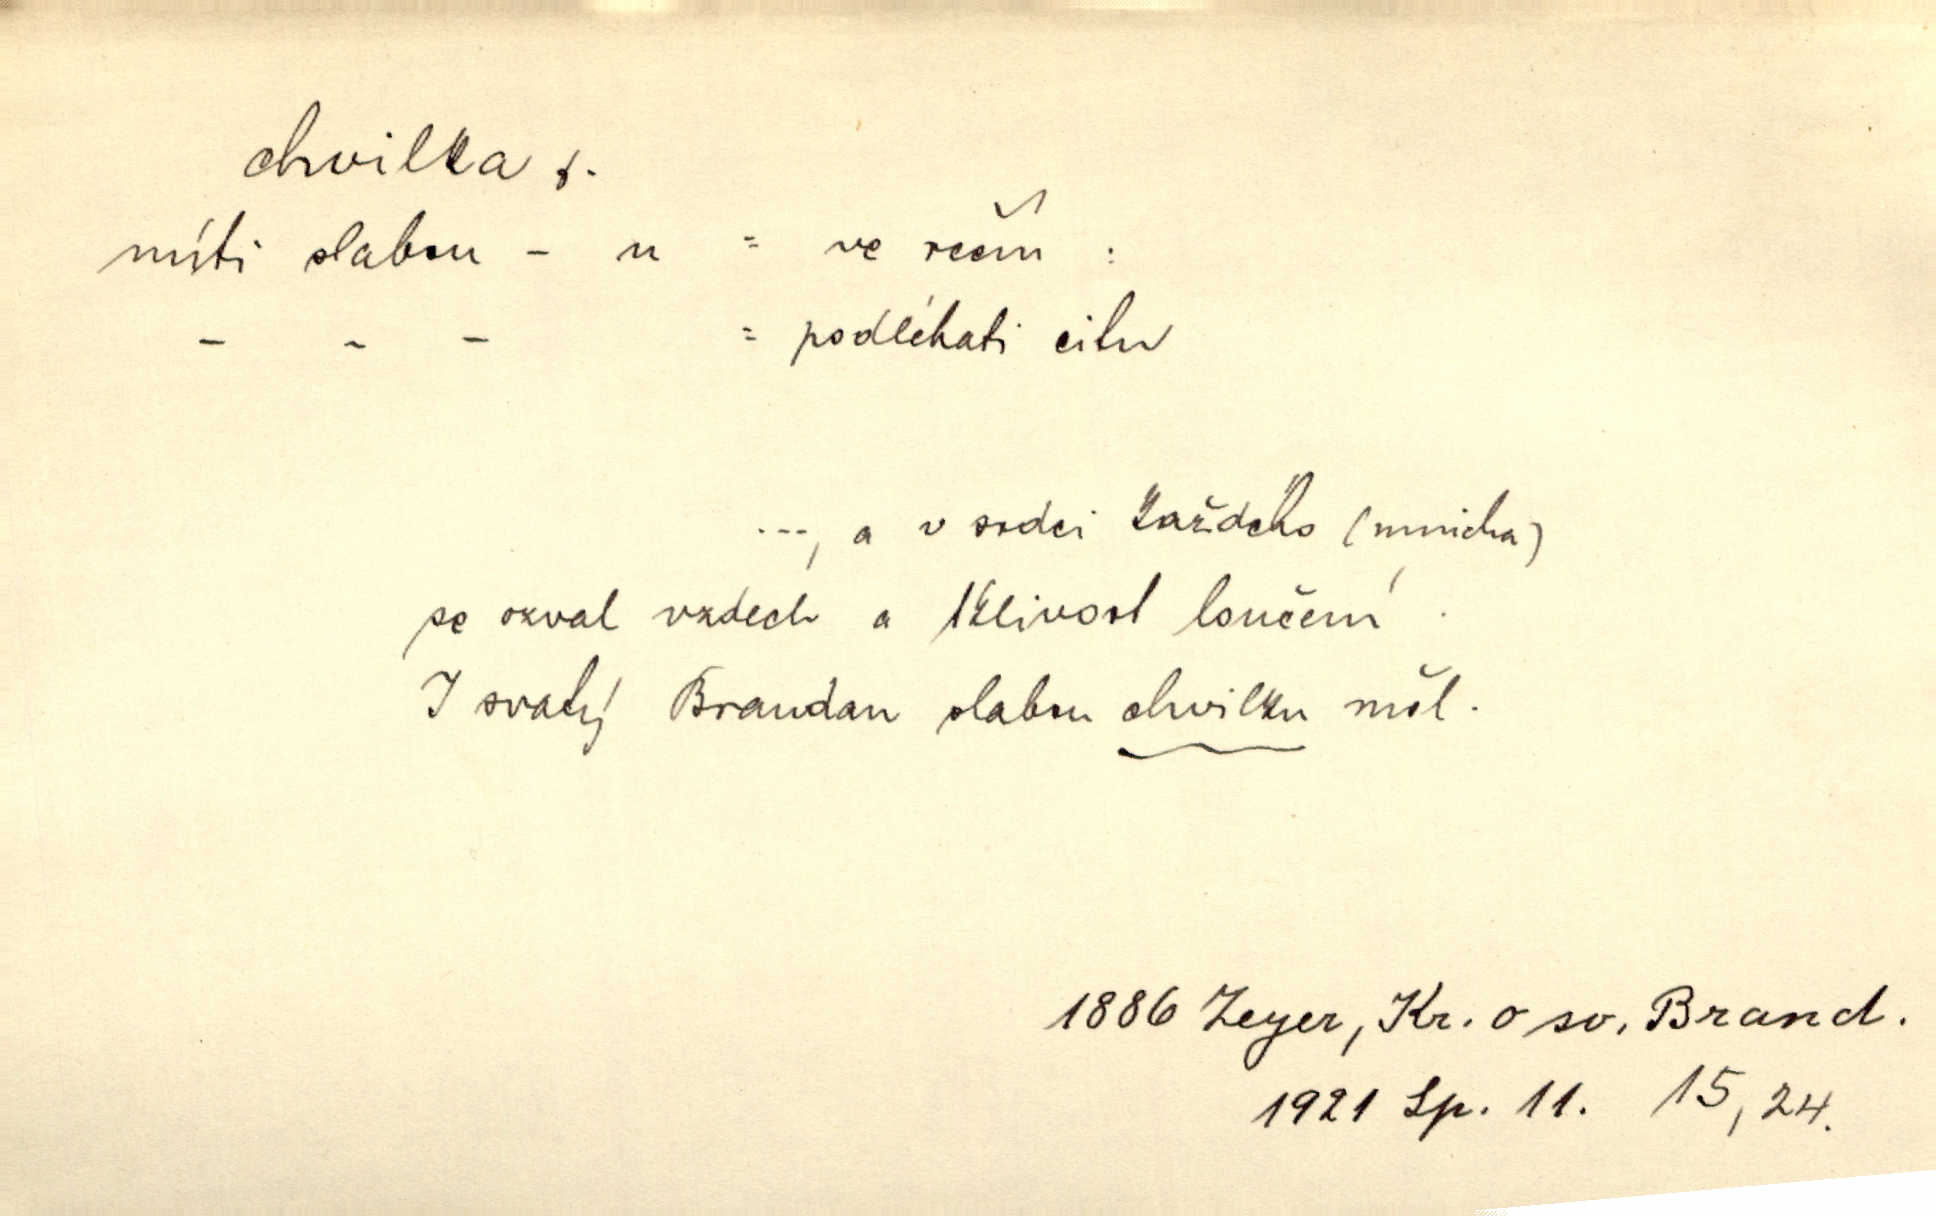 chvilka f.
míti slabou - u = ve rčení :
- - - = podléhati citu
---, a v srdci každého (mnicha)
se ozval vzdech a tklivost loučení.
I svatý Brandan slabou chvilku měl.
1886 Zeyer, Kr. o sv. Brand.
1921 Sp. 11. 15,24.